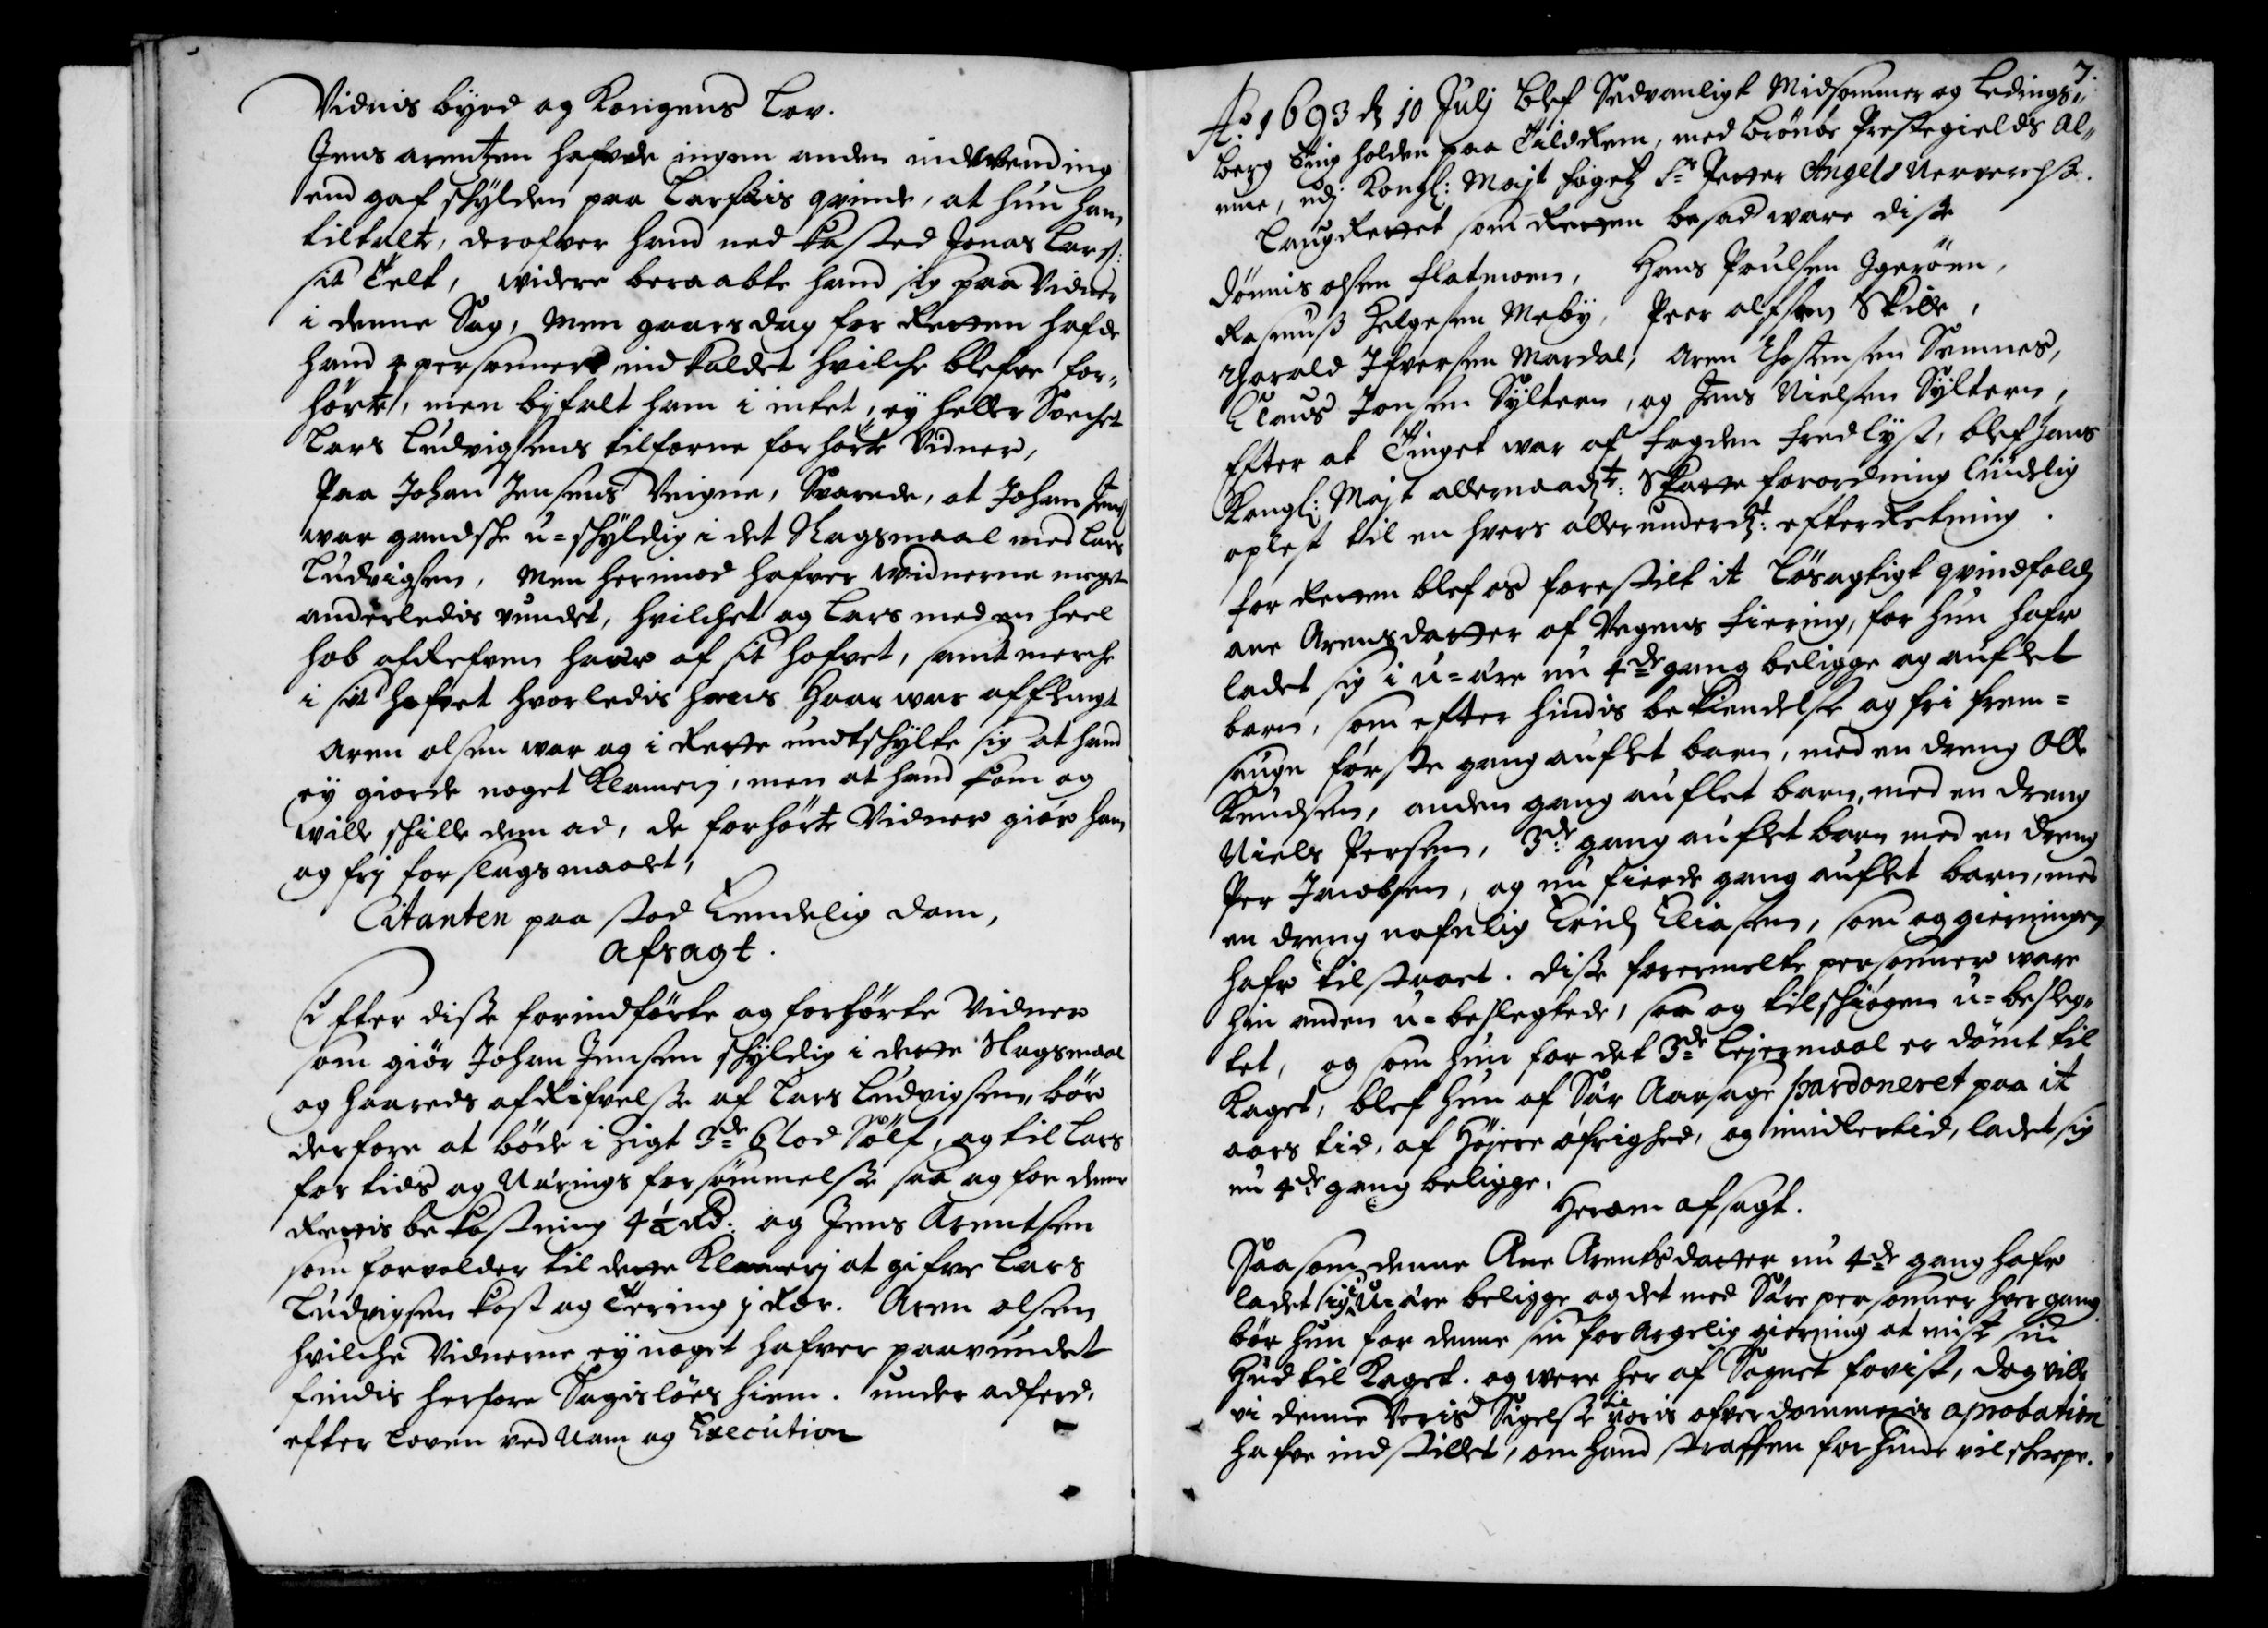 Vidnis byrd og Kongens Lov.
Jens arentzen hafde ingen anden indvending
end gaf schylden paa Larsis qvinde, at hun ham
tiltalte, derofver hand ned kasted Jonas Lars:
sit Telt, widere beraabte hand sig paa Vidner
i denne Sag, men gaarsdag for Retten hafde
hand 4 personner indkaldet hvilche blefve for„
hørte, men byfalt ham i intet, ey heller Svechet
Lars Ludvigsens tilforne forhørte Vidner,
Paa Johan Jensens Veigne, Svarede, at Johan Jens:
war gandsche u=schyldig i det Slagsmaal med Lars
Ludvigsen, Men herimod hafver widnerne meget
anderledis vundet, hvilchet og Lars med en heel
hob afRefven haar af sit hofvet, samt merche
i sit hofvet hvorledis hans Haar war affslugt
Aren olsen war og i Rette undschylte sig at hand
ey giorde noget Klamerj, men at hand kom og
wille schille dem ad, de forhørte Vidner giør ham
og frj for slagsmaalet,
Citanten paa stod Kendelig dom,
Afsagt.
Efter disse forindførte og forhørte Vidner
som giør Johan Jensen schyldig i dette Slagsmaal
og haareds afRifvelse af Lars Ludvigsen, bør
derfore at bøde i Sigt 3de 6 lod Sølf, og til Lars
for tids og Nærings forsømmelse saa og for denne
Rettis bekostning 4½ Rd: og Jens Arentsen
som forvolder til dette Klamerj at gifve Lars
Ludvigsen kost og Tæring j Rdr. Aren olsen
hvilche Vidnerne ey noget hafver paavundet
findis herfore Sagisløes hiem. under adferd,
efter Loven ved Nam og Execution
7.
Ao 1693 d 10 Julj Blef Sedvanligt Midsommer og Ledings„
berg Ting holden paa Tilrem, med Brønøe Prestegields Al„
mue, udj Kongl: Mayt foget Sr Petter Angels Nerverelse.
Laug Rettet som Retten besad ware disse
Dønnis olsen flatmoen, Hans Poulsen Ygerøen,
Rasmus Helgesen Meby, Peer olfsen Skille,
Harald Ifversen Mardal, Aren Thostensen Semnes,
Claus Jonsen Syltern, og Jens Nielsen Syltern,
Efter at Tinget war af fogden fredlyst, blef hans
Kongl: Mayt allernaadt: Skatte forordning lydelig
oplest til en hvers allerunderdt: efterRetning.
for Retten blef os forestilt it Løsagtigt qvindfolch
ane Arensdatter af Vegens fiering, for hun hafr
ladet sig i u=ære nu 4de gang beligge og auflet
barn, som efter hindis bekiendelse og fri frem=
sagn første gang auflet barn, med en dreng Olle
Knudsen, anden gang auflet barn, med en dreng
Niels Persen, 3de gang auflet barn med en dreng
Per Jacobsen, og nu fierde gang auflet barn, med
en dreng nafnlig Erich Eliasen, som og gierningen
hafr tilstaaet. disse forermelte personner ware
hin anden u=beslegtede, saa og tilschiøgen u=besleg„
tet, og som hun for det 3de Lejermaal er dømt til
Kaget, blef hun af Sær Aarsage pardoneret paa it
aars tid, af Højere øfrighed, og imidlertid, ladet sig
nu 4de gang beligge.
Herom afsagt.
Saasom denne Ane Arentsdatter nu 4de gang hafr
ladet sig i U=ære beligge og det med Sære personner hver gang
bør hun for denne sin forargelig gierning at miste sin
Hud til Kaget. og were her af Sognet forvist, dog ville
vi denne Voris Sigelse til voris ofverdommeris aprobation
hafve indstillet, om hand straffen for hinde vil scherpe.